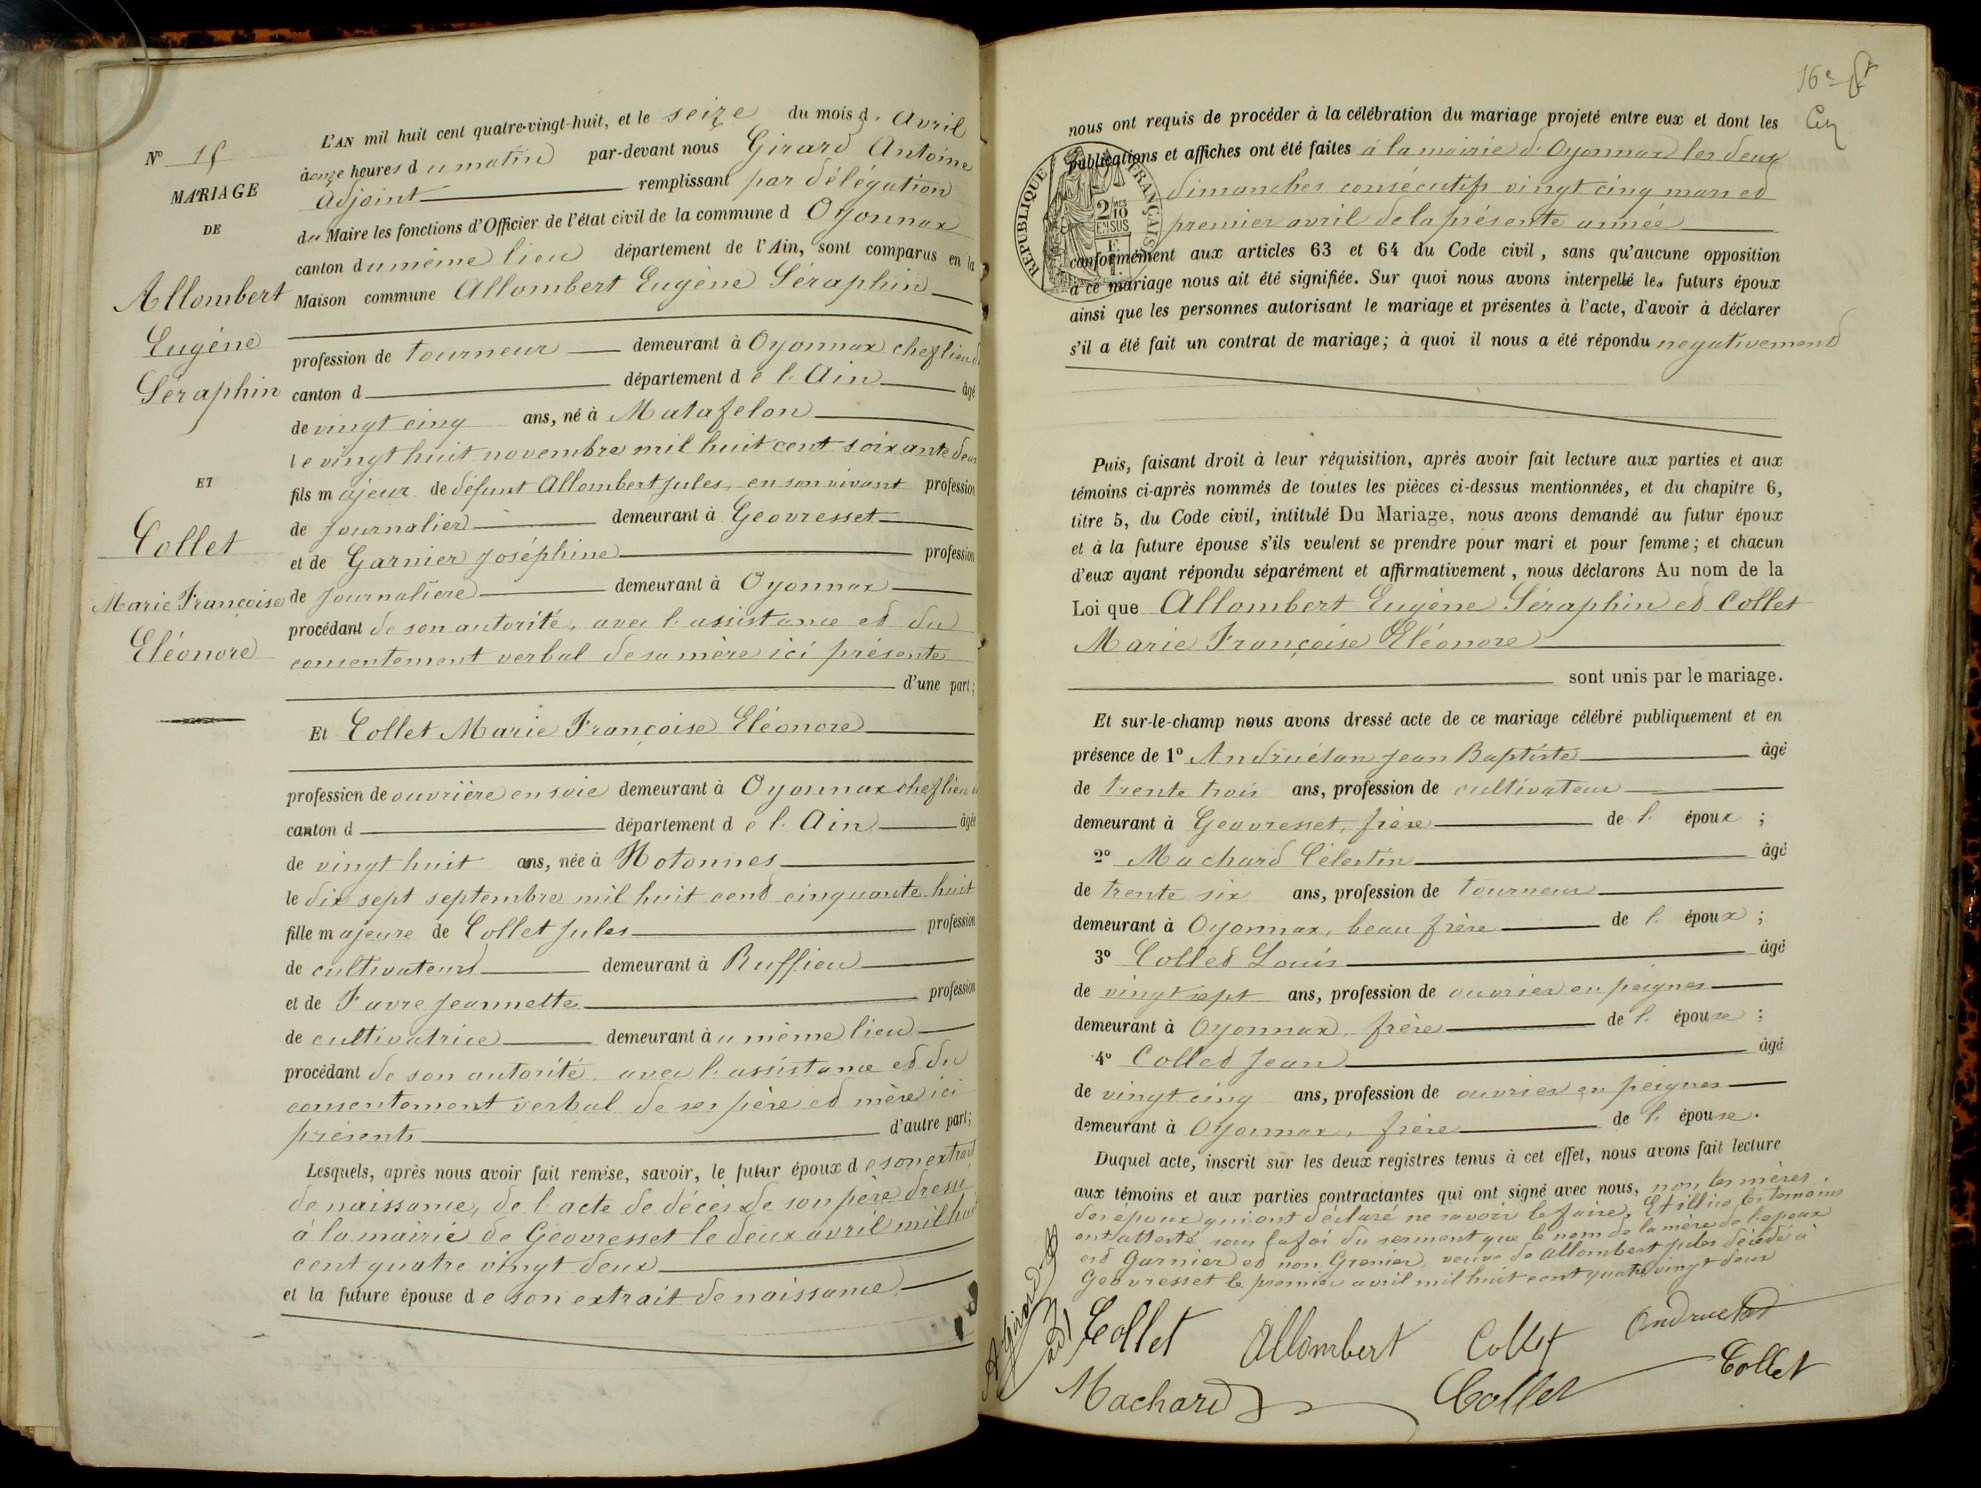 N° 15
MARIAGE
DE
Allombert
Eugène
Séraphin
ET
Collet
Marie Françoise
Eléonore
L'AN mil huit cent quatre-vingt-huit, et le seize du mois d' Avril
à onze heures du matin par-devant nous Girard Antoine
Adjoint remplissant par délégation
du Maire les fonctions d'Officier de l'état civil de la commune d Oyonnax
canton du même lieu département de l'Ain, sont comparus en la
Maison commune Allombert Eugène Séraphin
profession de tourneur demeurant à Oyonnax chef lieu d
canton d département de l'Ain âgé
de vingt cinq ans, né à Matafelon
le vingt huit novembre mil huit cent soixante deux
fils majeur de défunt Allombert Jules, en son vivant profession
de Journalier demeurant à Geovresset
et de Garnier Joséphine profession
de Journalière demeurant à Oyonnax
procédant de son autorité, avec l'assistance et du
consentement verbal de sa mère ici présente
d'une part;
Et Collet Marie Françoise Eléonore
profession de ouvrière en soie demeurant à Oyonnax chef lieu d
canton d département de l'Ain âgée
de vingt huit ans, née à Hotonnes
le dix sept septembre mil huit cent cinquante huit
fille majeure de Collet Jules profession
de cultivateur demeurant à Ruffieu
et de Favre Jeannette profession
de cultivatrice demeurant au même lieu
procédant de son autorité, avec l'assistance et du
consentement verbal de ses père et mère ici
présents d'autre part;
Lesquels, après nous avoir fait remise, savoir, le futur époux de son extrait
de naissance, de l'acte de décès de son père dressé
à la mairie de Geovresset le deux avril mil huit
cent quatre vingt deux
et la future épouse de son extrait de naissance
16e
nous ont requis de procéder à la célébration du mariage projeté entre eux et dont les
publications et affiches ont été faites à la mairie d'Oyonnax les deux
dimanches consécutifs vingt cinq mars et
premier avril de la présente année
RÉPUBLIQUE FRANÇAISE
2/10
EN SUS
conformément aux articles 63 et 64 du Code civil, sans qu'aucune opposition
à ce mariage nous ait été signifiée. Sur quoi nous avons interpellé les futurs époux
ainsi que les personnes autorisant le mariage et présentes à l'acte, d'avoir à déclarer
s'il a été fait un contrat de mariage; à quoi il nous a été répondu négativement
Puis, faisant droit à leur réquisition, après avoir fait lecture aux parties et aux
témoins ci-après nommés de toutes les pièces ci-dessus mentionnées, et du chapitre 6,
titre 5, du Code civil, intitulé Du Mariage, nous avons demandé au futur époux
et à la future épouse s'ils veulent se prendre pour mari et pour femme; et chacun
d'eux ayant répondu séparément et affirmativement, nous déclarons Au nom de la
Loi que Allombert Eugène Séraphin et Collet
Marie Françoise Eléonore
sont unis par le mariage.
Et sur-le-champ nous avons dressé acte de ce mariage célébré publiquement et en
présence de 1° Andruétan Jean Baptiste âgé
de trente trois ans, profession de cultivateur
demeurant à Geovresset, frère de l' époux ;
2° Machard Célestin âgé
de trente six ans, profession de tourneur
demeurant à Oyonnax, beau frère de l' époux ;
3° Collet Louis âgé
de vingt sept ans, profession de ouvrier en peignes
demeurant à Oyonnax, frère de l' épouse ;
4° Collet Jean âgé
de vingt cinq ans, profession de ouvrier en peignes
demeurant à Oyonnax, frère de l' épouse.
Duquel acte, inscrit sur les deux registres tenus à cet effet, nous avons fait lecture
aux témoins et aux parties contractantes qui ont signé avec nous, non les mères
des époux qui ont déclaré ne savoir le faire. Et illico les témoins
ont attesté sous la foi du serment que le nom de la mère de l'époux
est Garnier et non Grenier, veuve de Allombert Jules décédé à
Geovresset le premier avril mil huit cent quatre vingt deux
A Girard adj
Collet Allombert Collet Andruétan
Machard Collet Collet